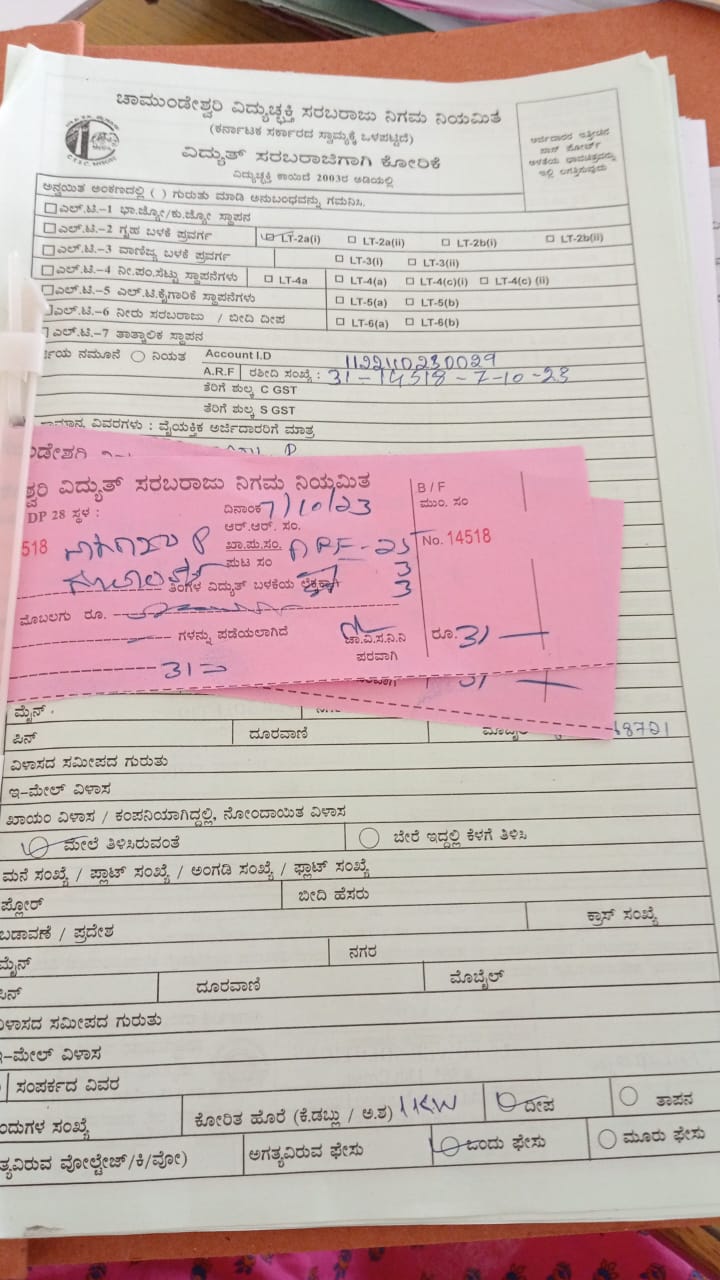 ಚಾಮುಂಡೇಶ್ವರಿ ವಿದ್ಯುಚ್ಛಕ್ತಿ ಸರಬರಾಜು ನಿಗಮ ನಿಯಮಿತ
(ಕರ್ನಾಟಕ ಸರ್ಕಾರದ ಸ್ವಾಮ್ಯಕ್ಕೆ ಒಳಪಟ್ಟಿದೆ)
ವಿದ್ಯುತ್ ಸರಬರಾಜಿಗಾಗಿ ಕೋರಿಕೆ
ವಿದ್ಯುಚ್ಛಕ್ತಿ ಕಾಯಿದೆ 2003ರ ಅಡಿಯಲ್ಲಿ
ಅರ್ಜಿದಾರರ ಇತ್ತೀಚಿನ
ಪಾಸ್ ಪೋರ್ಟ್
ಅಳತೆಯ ಭಾವಚಿತ್ರವನ್ನು
ಇಲ್ಲಿ ಲಗತ್ತಿಸುವುದು
ಅನ್ವಯಿತ ಅಂಕಣದಲ್ಲಿ ( ) ಗುರುತು ಮಾಡಿ ಅನುಬಂಧವನ್ನು ಗಮನಿಸಿ.
ಎಲ್.ಟಿ.–1 ಭಾ.ಜ್ಯೋ/ಕು.ಜ್ಯೋ ಸ್ಥಾಪನ
ಎಲ್.ಟಿ.–2 ಗೃಹ ಬಳಕೆ ಪ್ರವರ್ಗ LT-2a(i) LT-2a(ii) LT-2b(i) LT-2b(ii)
ಎಲ್.ಟಿ.–3 ವಾಣಿಜ್ಯ ಬಳಕೆ ಪ್ರವರ್ಗ LT-3(i) LT-3(ii)
ಎಲ್.ಟಿ.–4 ನೀ.ಪಂ.ಸೆಟ್ಟು ಸ್ಥಾಪನೆಗಳು LT-4a LT-4(a) LT-4(c)(i) LT-4(c) (ii)
ಎಲ್.ಟಿ.–5 ಎಲ್.ಟಿ.ಕೈಗಾರಿಕೆ ಸ್ಥಾಪನೆಗಳು LT-5(a) LT-5(b)
ಎಲ್.ಟಿ.–6 ನೀರು ಸರಬರಾಜು / ಬೀದಿ ದೀಪ LT-6(a) LT-6(b)
ಎಲ್.ಟಿ.–7 ತಾತ್ಕಾಲಿಕ ಸ್ಥಾಪನ
ನಮೂನೆ ನಿಯತ Account I.D 112240230029
A.R.F ರಶೀದಿ ಸಂಖ್ಯೆ : 31-14518-7-10-23
ತೆರಿಗೆ ಶುಲ್ಕ C GST
ತೆರಿಗೆ ಶುಲ್ಕ S GST
ವಿವರಗಳು : ವೈಯಕ್ತಿಕ ಅರ್ಜಿದಾರರಿಗೆ ಮಾತ್ರ
ಶ್ವರಿ ವಿದ್ಯುತ್ ಸರಬರಾಜು ನಿಗಮ ನಿಯಮಿತ
B / F
DP 28 ಸ್ಥಳ : ದಿನಾಂಕ 7/10/23 ಮುಂ. ಸಂ
ಆರ್.ಆರ್. ಸಂ.
518 ಖಾ.ಪು.ಸಂ. No. 14518
ಪುಟ ಸಂ 3
ತಿಂಗಳ ವಿದ್ಯುತ್ ಬಳಕೆಯ 3
ಮೊಬಲಗು ರೂ.
ಗಳನ್ನು ಪಡೆಯಲಾಗಿದೆ ಚಾ.ವಿ.ಸ.ನಿ.ನಿ ರೂ. 31
ಪರವಾಗಿ
31=
31
ಮೈನ್
ಪಿನ್ ದೂರವಾಣಿ 68721
ವಿಳಾಸದ ಸಮೀಪದ ಗುರುತು
ಇ–ಮೇಲ್ ವಿಳಾಸ
ಖಾಯಂ ವಿಳಾಸ / ಕಂಪನಿಯಾಗಿದ್ದಲ್ಲಿ, ನೋಂದಾಯಿತ ವಿಳಾಸ
ಮೇಲೆ ತಿಳಿಸಿರುವಂತೆ ಬೇರೆ ಇದ್ದಲ್ಲಿ ಕೆಳಗೆ ತಿಳಿಸಿ
ಮನೆ ಸಂಖ್ಯೆ / ಪ್ಲಾಟ್ ಸಂಖ್ಯೆ / ಅಂಗಡಿ ಸಂಖ್ಯೆ / ಫ್ಲಾಟ್ ಸಂಖ್ಯೆ
ಪ್ಲೋರ್ ಬೀದಿ ಹೆಸರು
ಬಡಾವಣೆ / ಪ್ರದೇಶ ಕ್ರಾಸ್ ಸಂಖ್ಯೆ
ಮೈನ್ ನಗರ
ಪಿನ್ ದೂರವಾಣಿ ಮೊಬೈಲ್
ವಿಳಾಸದ ಸಮೀಪದ ಗುರುತು
ಇ–ಮೇಲ್ ವಿಳಾಸ
ಸಂಪರ್ಕದ ವಿವರ
ಸಂಖ್ಯೆ ಕೋರಿತ ಹೊರೆ (ಕೆ.ಡಬ್ಲು / ಅ.ಶ) 1KW ದೀಪ ತಾಪನ
ವೋಲ್ಟೇಜ್/ಕಿ/ವೋ) ಅಗತ್ಯವಿರುವ ಫೇಸು ಒಂದು ಫೇಸು ಮೂರು ಫೇಸು